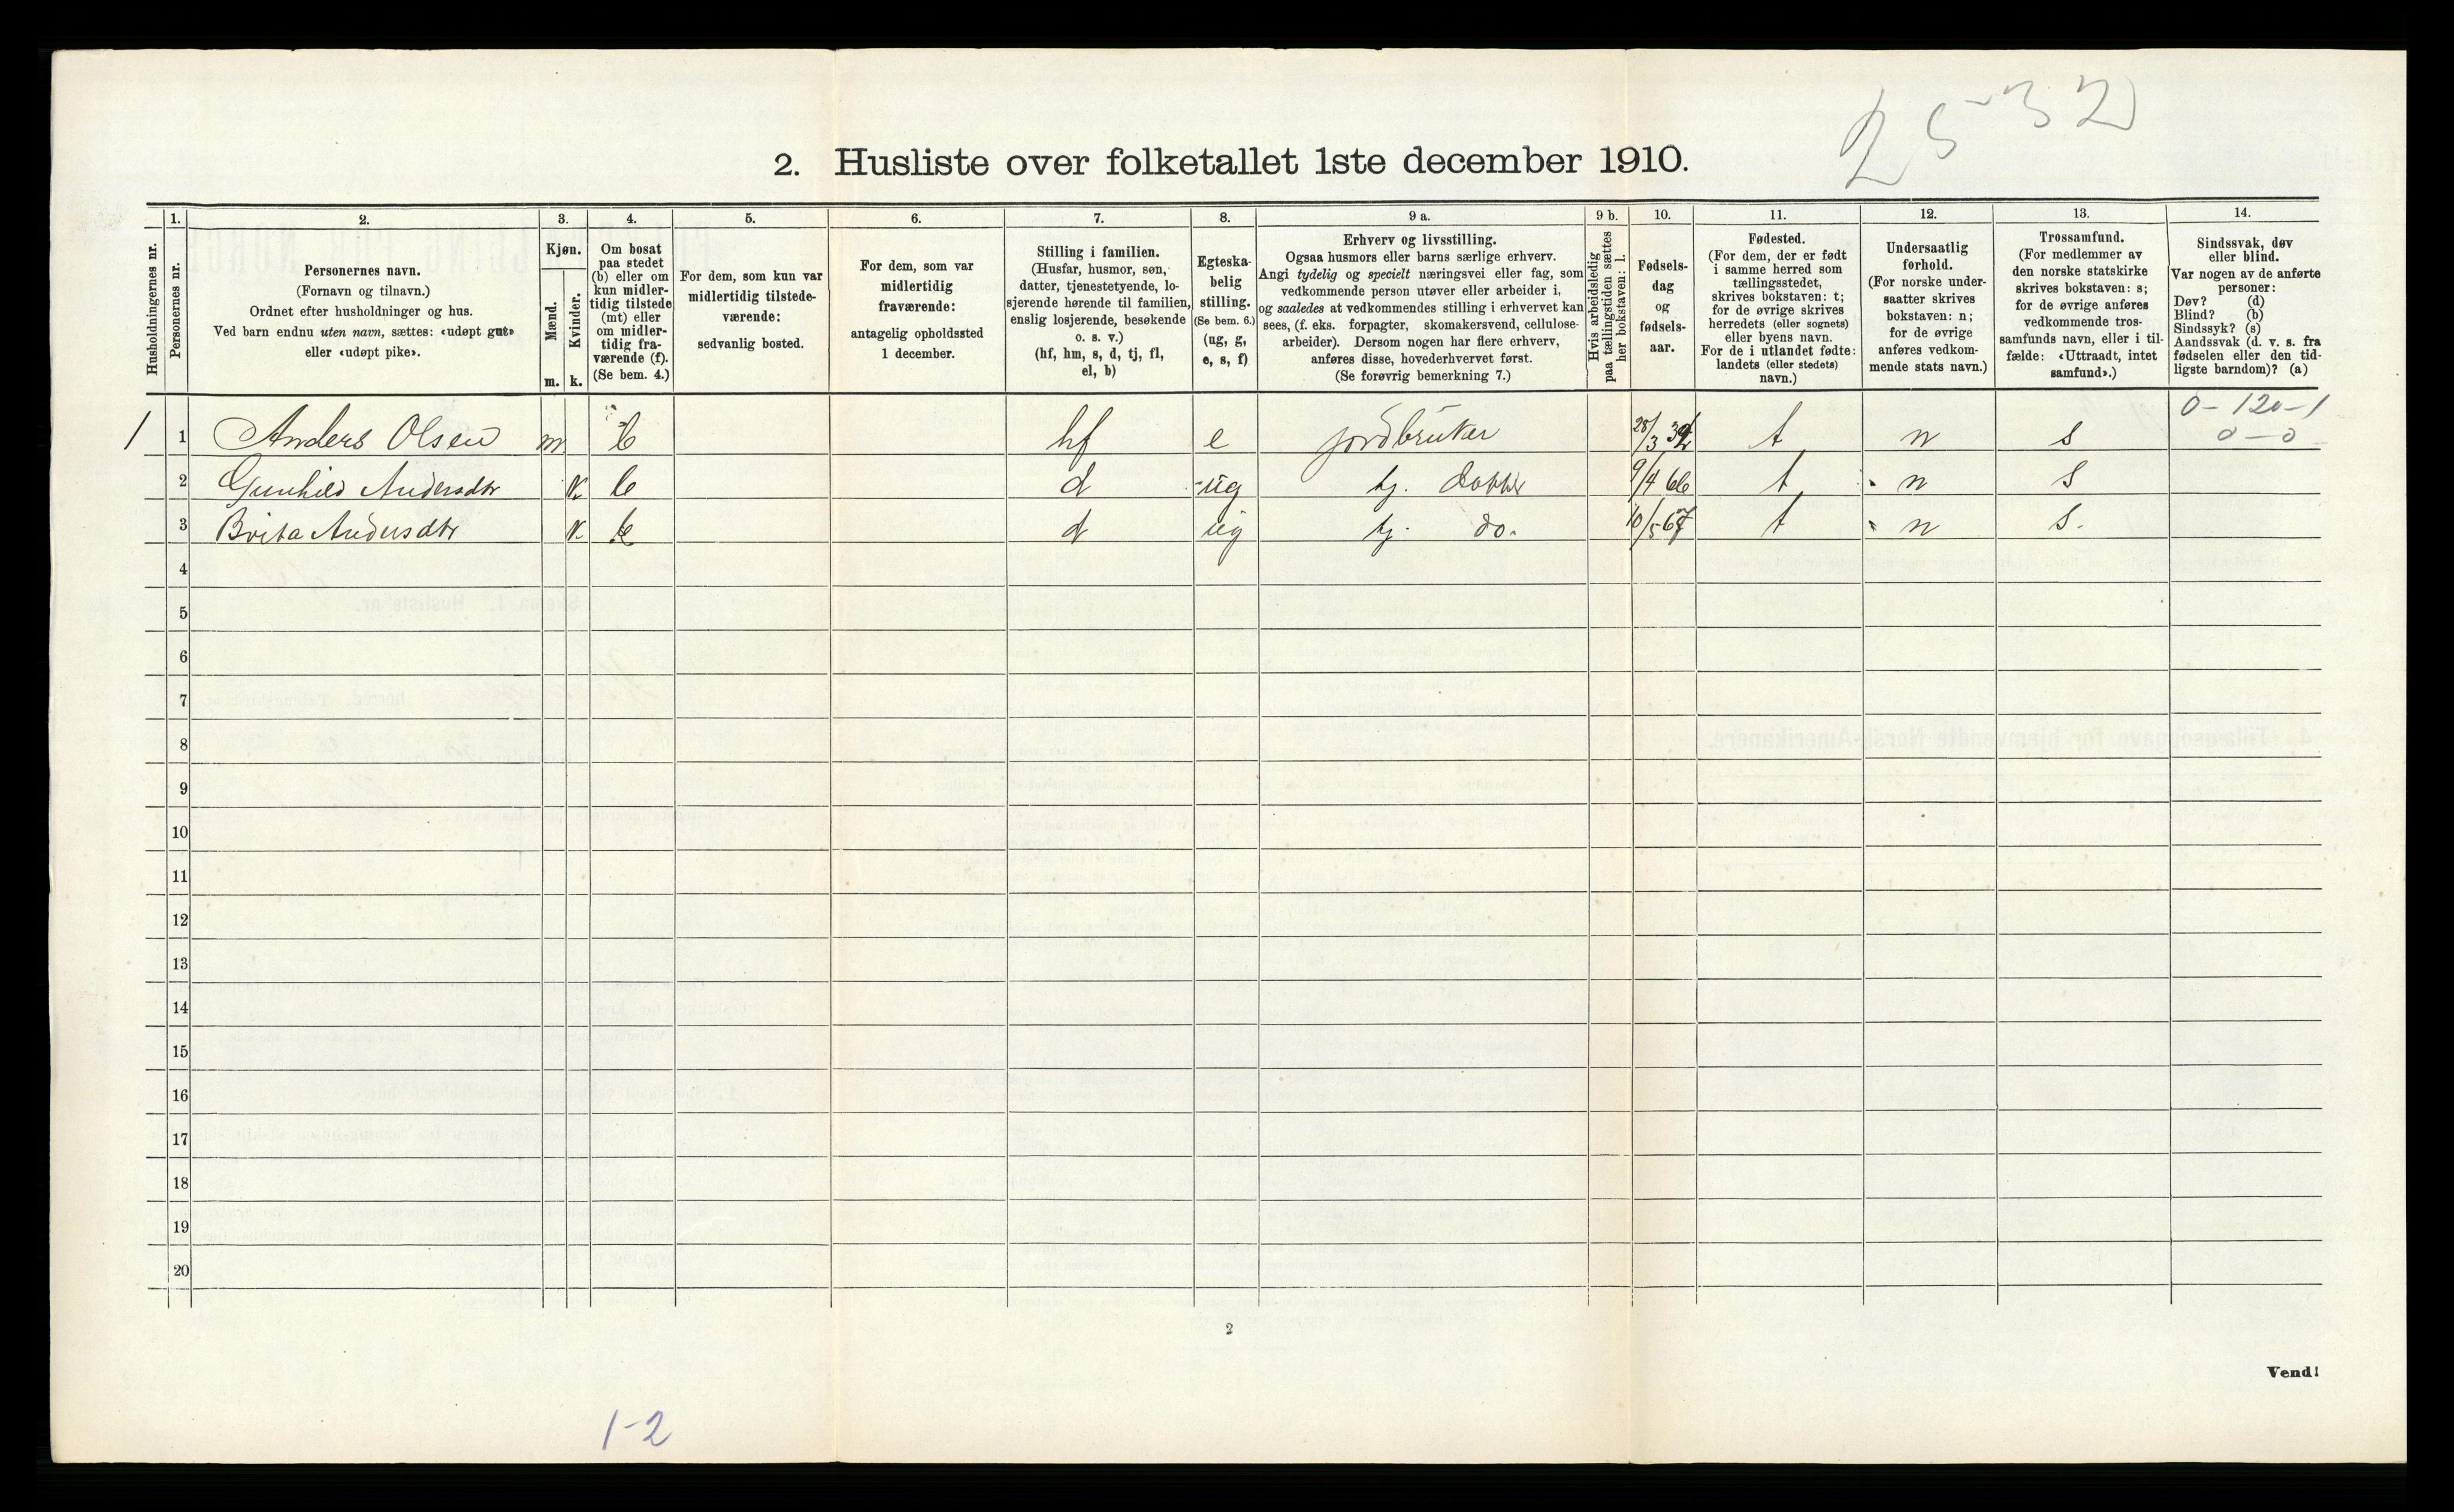 2532
2. Husliste over folketallet 1ste december 1910.
Husholdningernes nr.
1.
Personernes nr.
2.
Personernes navn.
(Fornavn og tilnavn.)
Ordnet efter husholdninger og hus.
Ved barn endnu uten navn, sættes: «udøpt gut»
eller «udøpt pike».
3.
Kjøn.
Mænd.
Kvinder.
m. k.
4.
Om bosat
paa stedet
(b) eller om
kun midler-
tidig tilstede
(mt) eller
om midler-
tidig fra-
værende (f).
(Se bem. 4.)
5.
For dem, som kun var
midlertidig tilstede-
værende:
sedvanlig bosted.
6.
For dem, som var
midlertidig
fraværende:
antagelig opholdssted
1 december.
7.
Stilling i familien.
(Husfar, husmor, søn,
datter, tjenestetyende, lo-
sjerende hørende til familien,
enslig losjerende, besøkende
o. s. v.)
(hf, hm, s, d, tj, fl,
el, b)
8.
Egteska-
belig
stilling.
(Se bem. 6.)
(ug, g,
e, s, f)
9 a.
Erhverv og livsstilling.
Ogsaa husmors eller barns særlige erhverv.
Angi tydelig og specielt næringsvei eller fag, som
vedkommende person utøver eller arbeider i,
og saaledes at vedkommendes stilling i erhvervet kan
sees, (f. eks. forpagter, skomakersvend, cellulose-
arbeider). Dersom nogen har flere erhverv,
anføres disse, hovederhvervet først.
(Se forøvrig bemerkning 7.)
9 b.
Hvis arbeidsledig
paa tællingstiden sættes
her bokstaven: l.
10.
Fødsels-
dag
og
fødsels-
aar.
11.
Fødested.
(For dem, der er født
i samme herred som
tællingsstedet,
skrives bokstaven: t;
for de øvrige skrives
herredets (eller sognets)
eller byens navn.
For de i utlandet fødte:
landets (eller stedets)
navn.)
12.
Undersaatlig
forhold.
(For norske under-
saatter skrives
bokstaven: n;
for de øvrige
anføres vedkom-
mende stats navn.)
13.
Trossamfund.
(For medlemmer av
den norske statskirke
skrives bokstaven: s;
for de øvrige anføres
vedkommende tros-
samfunds navn, eller i til-
fælde: «Uttraadt, intet
samfund».)
14.
Sindssvak, døv
eller blind.
Var nogen av de anførte
personer:
Døv? (d)
Blind? (b)
Sindssyk? (s)
Aandssvak (d. v. s. fra
fødselen eller den tid-
ligste barndom)? (a)
0-120-1
1 1 Anders Olsen m b hf e jordbruker t n s 0-0
2 Gunhild Andersdtr k b d ug tj. 9/4 66 t n s
3 Brita Andersdtr k b d ug tj. do. 10/5 67 t n s.
4
5
6
7
8
9
10
11
12
13
14
15
16
17
18
19
20
2
Vend!
1-2